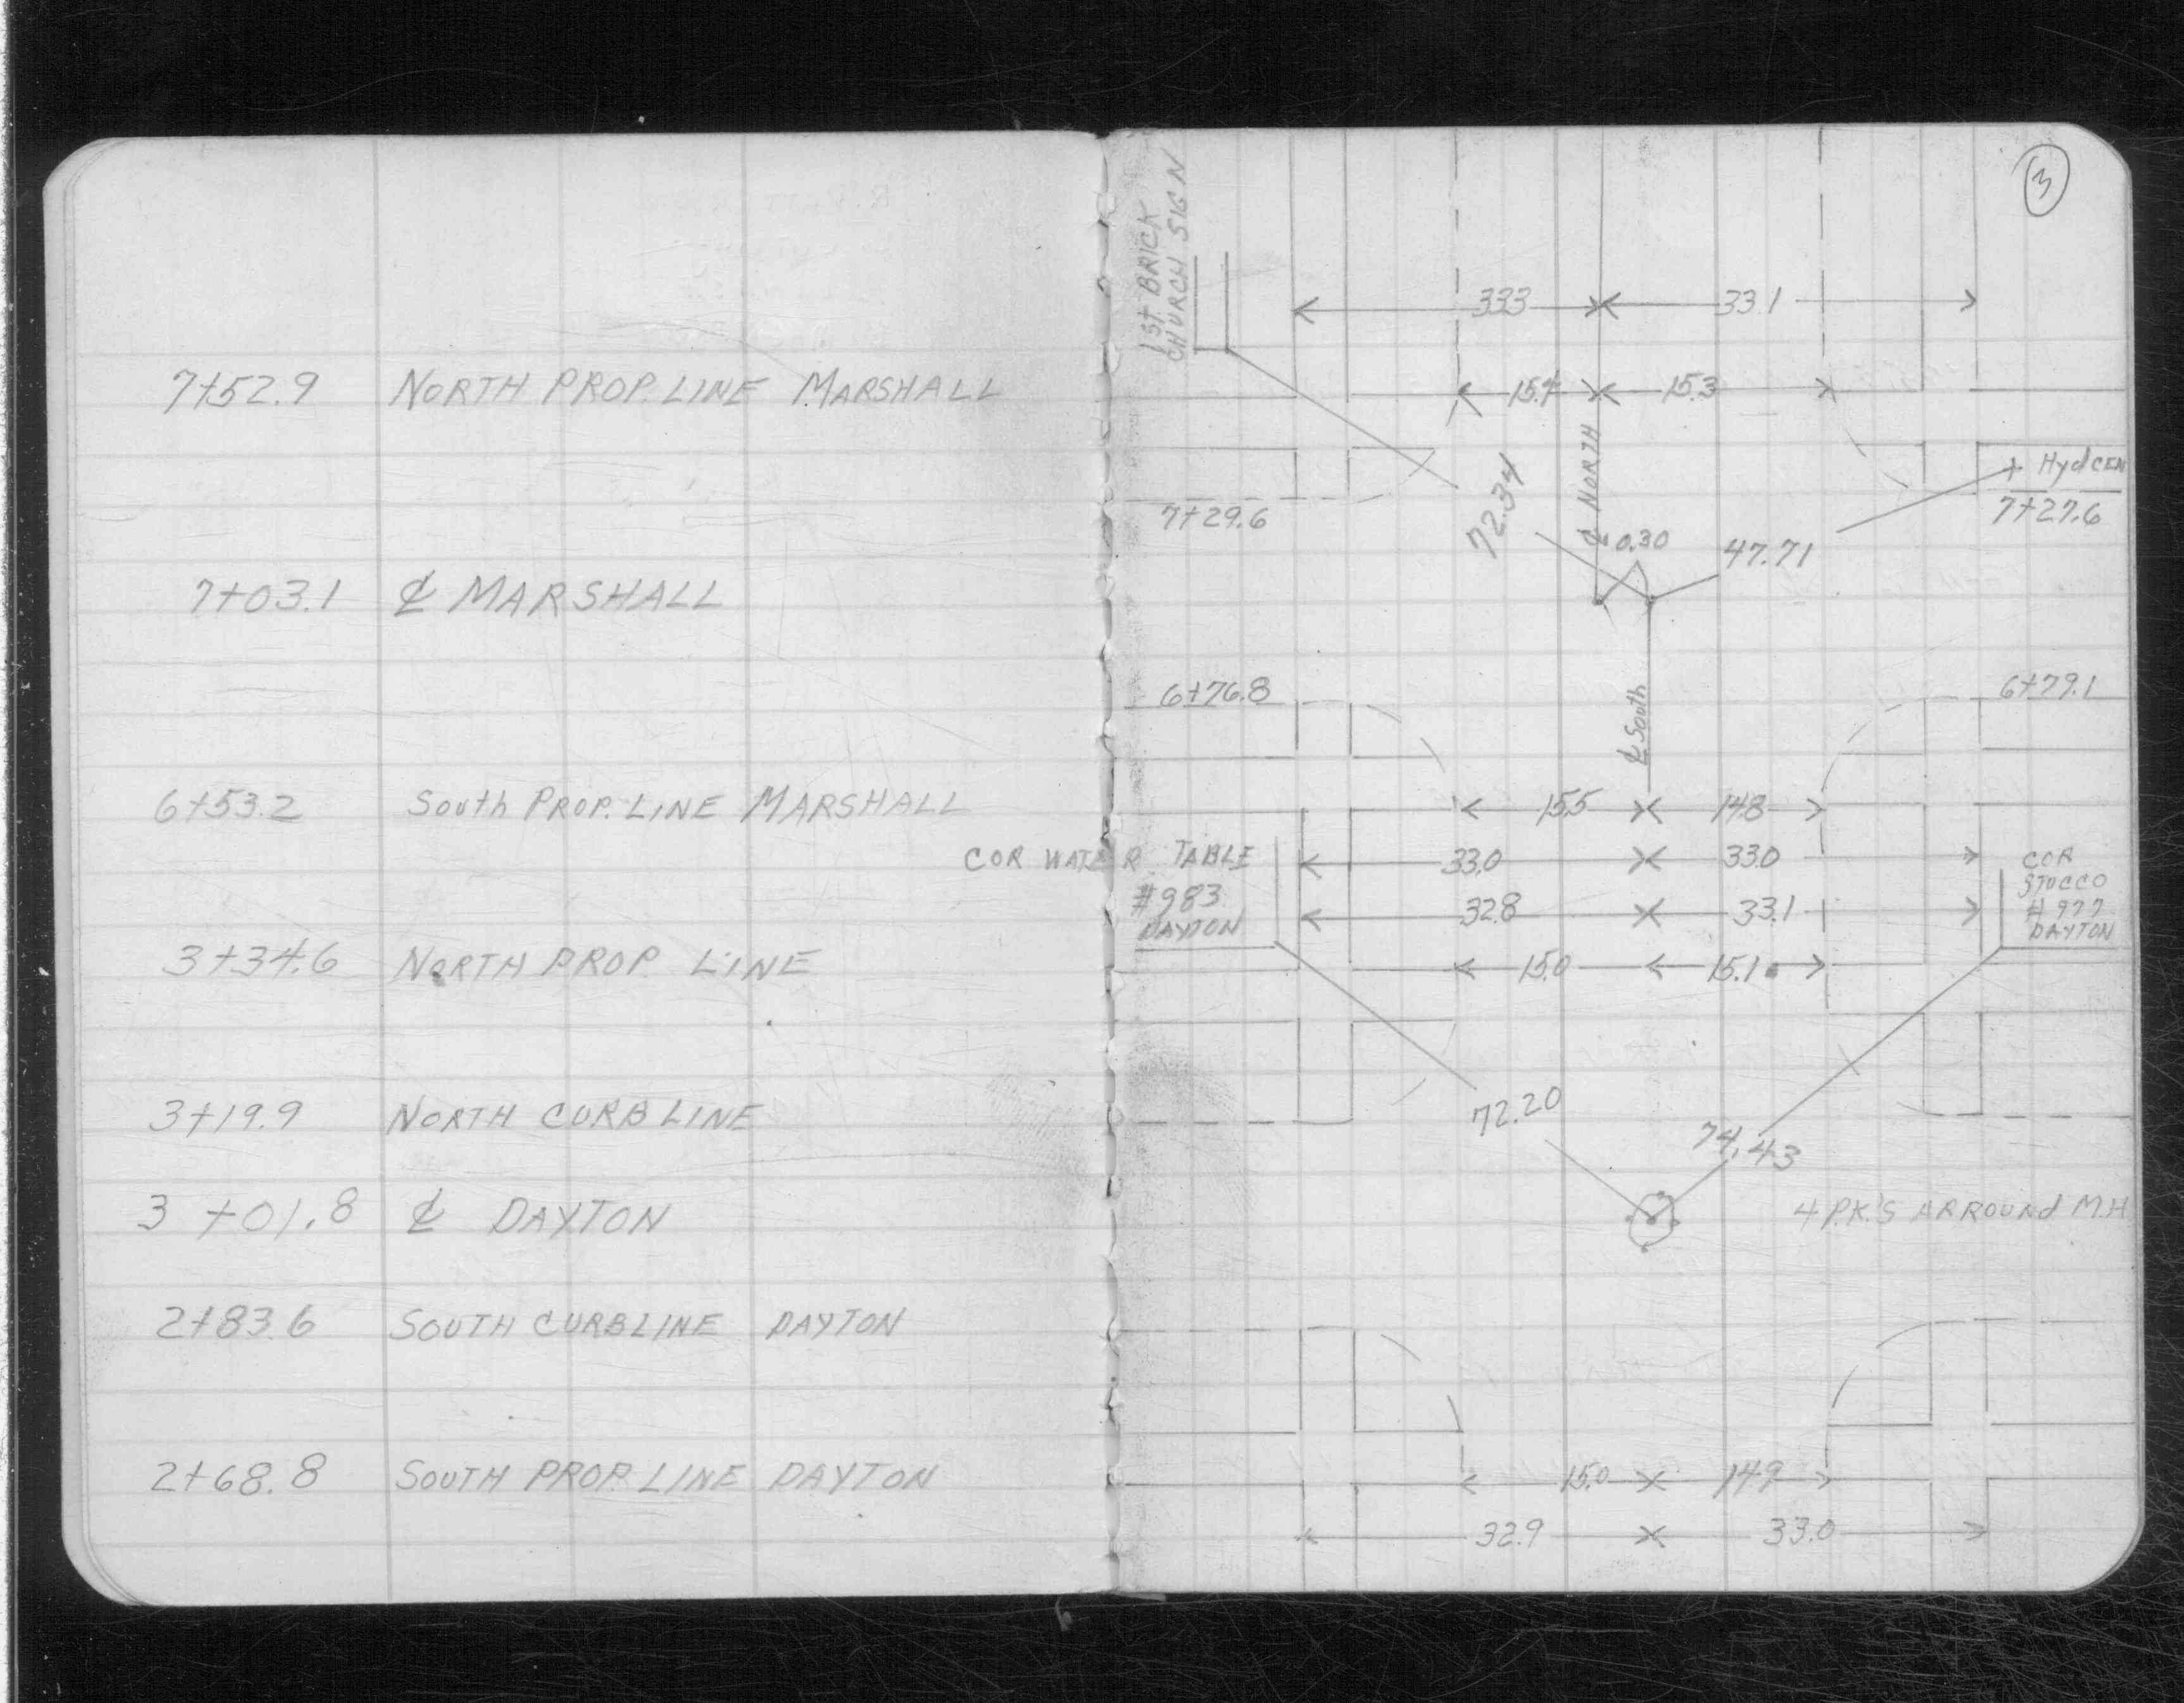 7+52.9 NORTH PROP. LINE MARSHALL
7+03.1 ℄ MARSHALL
6+53.2 South PROP. LINE MARSHALL
3+34.6 NORTH PROP LINE
3+19.9 NORTH CURB LINE
3+01.8 ℄ DAYTON
2+83.6 SOUTH CURBLINE DAYTON
2+68.8 SOUTH PROP. LINE DAYTON
3
1ST BRICK
CHURCH SIGN
333 33.1
15.4 15.3
℄ NORTH
+ Hyd CEN
7+29.6
72.34
7+27.6
0.30
47.71
6+76.8
6+79.1
℄ South
15.5 14.8
COR WATER TABLE
#983
DAYTON
33.0 33.0
32.8 33.1
COR
STUCCO
#977
DAYTON
15.0 15.1
72.20
74.43
4 P.K.'S ARROUND M.H
15.0 14.9
32.9 33.0